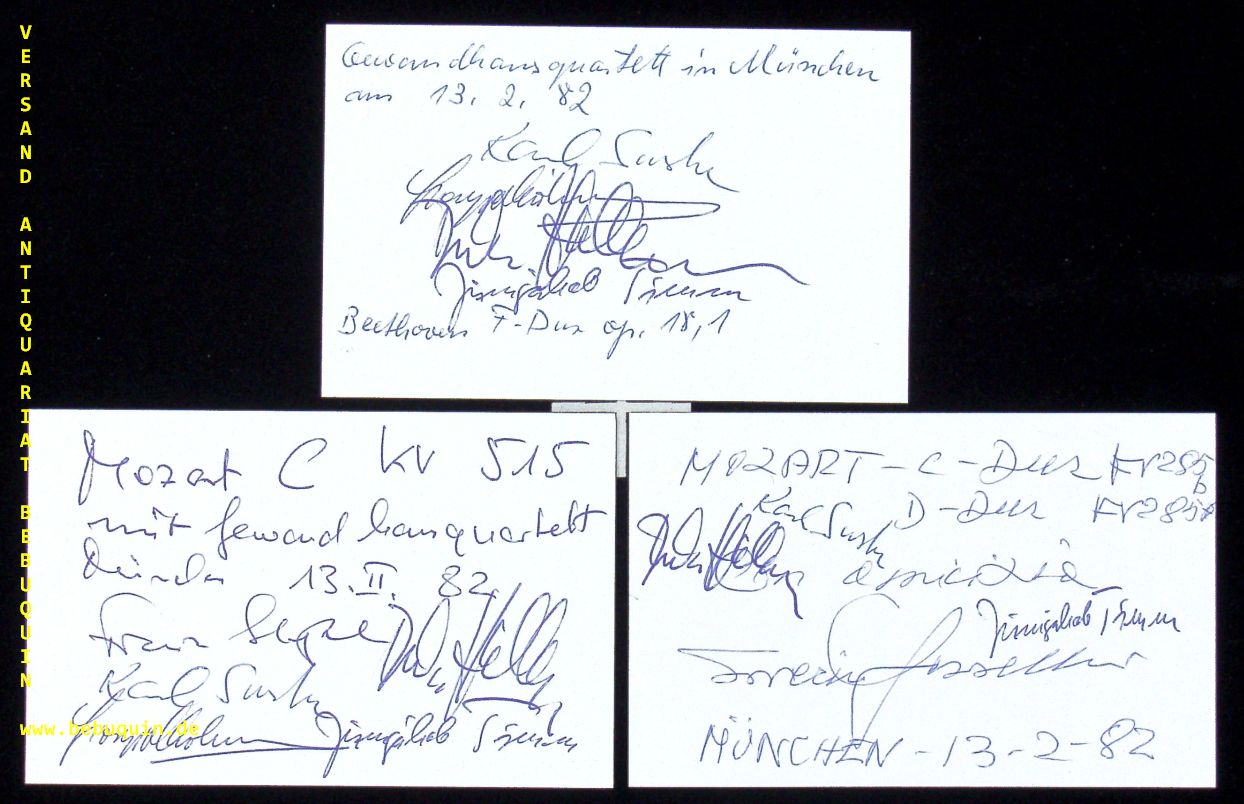 Gewandhausquartett in München
am 13. 2. 82
Karl Suske
Jürnjakob Timm
Beethoven F-Dur op. 18,1
Mozart C KV 515
mit Gewandhausquartett
München 13.II. 82
Franz
Karl Suske
Jürnjakob Timm
MOZART-C-Dur KV285b
Karl Suske D-Dur KV285a
Con amicizia
Jürnjakob Timm
MÜNCHEN-13-2-82
VERSAND ANTIQUARIAT BEBUQUIN
www.bebuquin.de